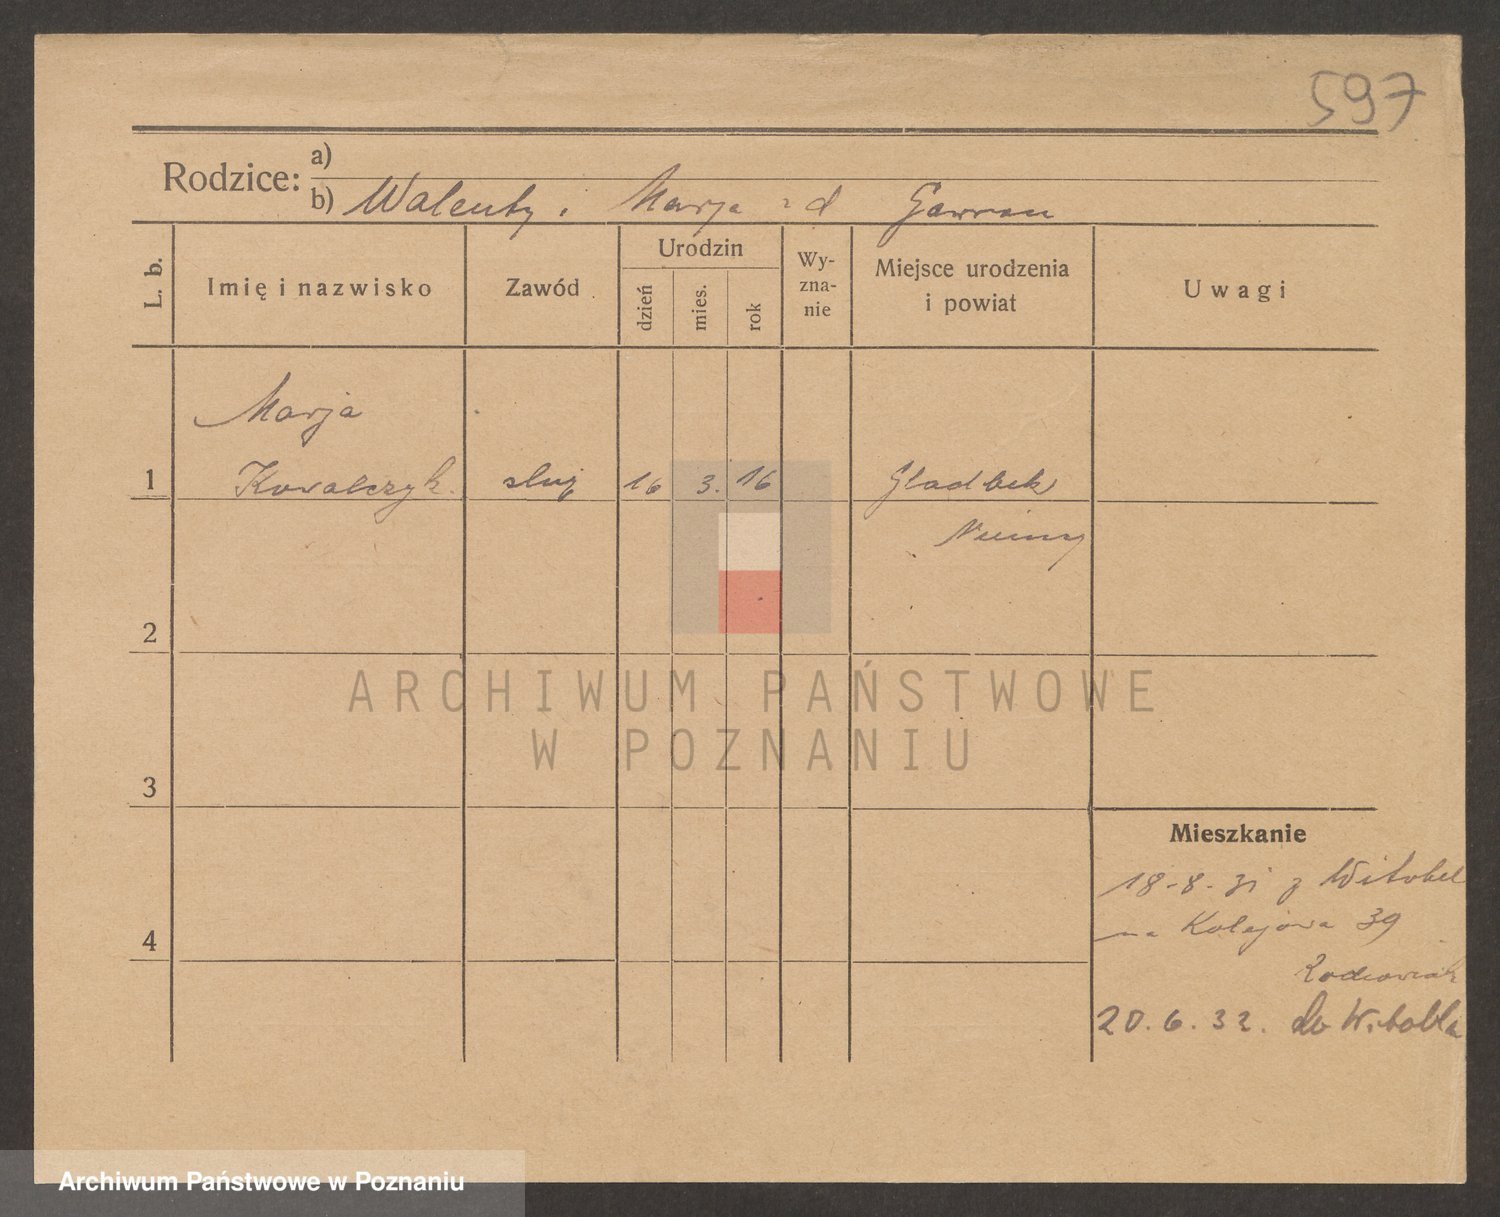 597
Rodzice: a)
b) Walenty i Marja zd Gawron
L. b.
Imię i nazwisko
Zawód
Urodzin
dzień
mies.
rok
Wy-
zna-
nie
Miejsce urodzenia
i powiat
Uwagi
Marja
1 Kowalczyk. służ 16 3. 16 Gladbek
Niemcy
2
ARCHIWUM PAŃSTWOWE
W POZNANIU
3
Mieszkanie
18-8-31 z Witobel
na Kolejowa 39
4
20.6.32. do Witobla
Archiwum Państwowe w Poznaniu